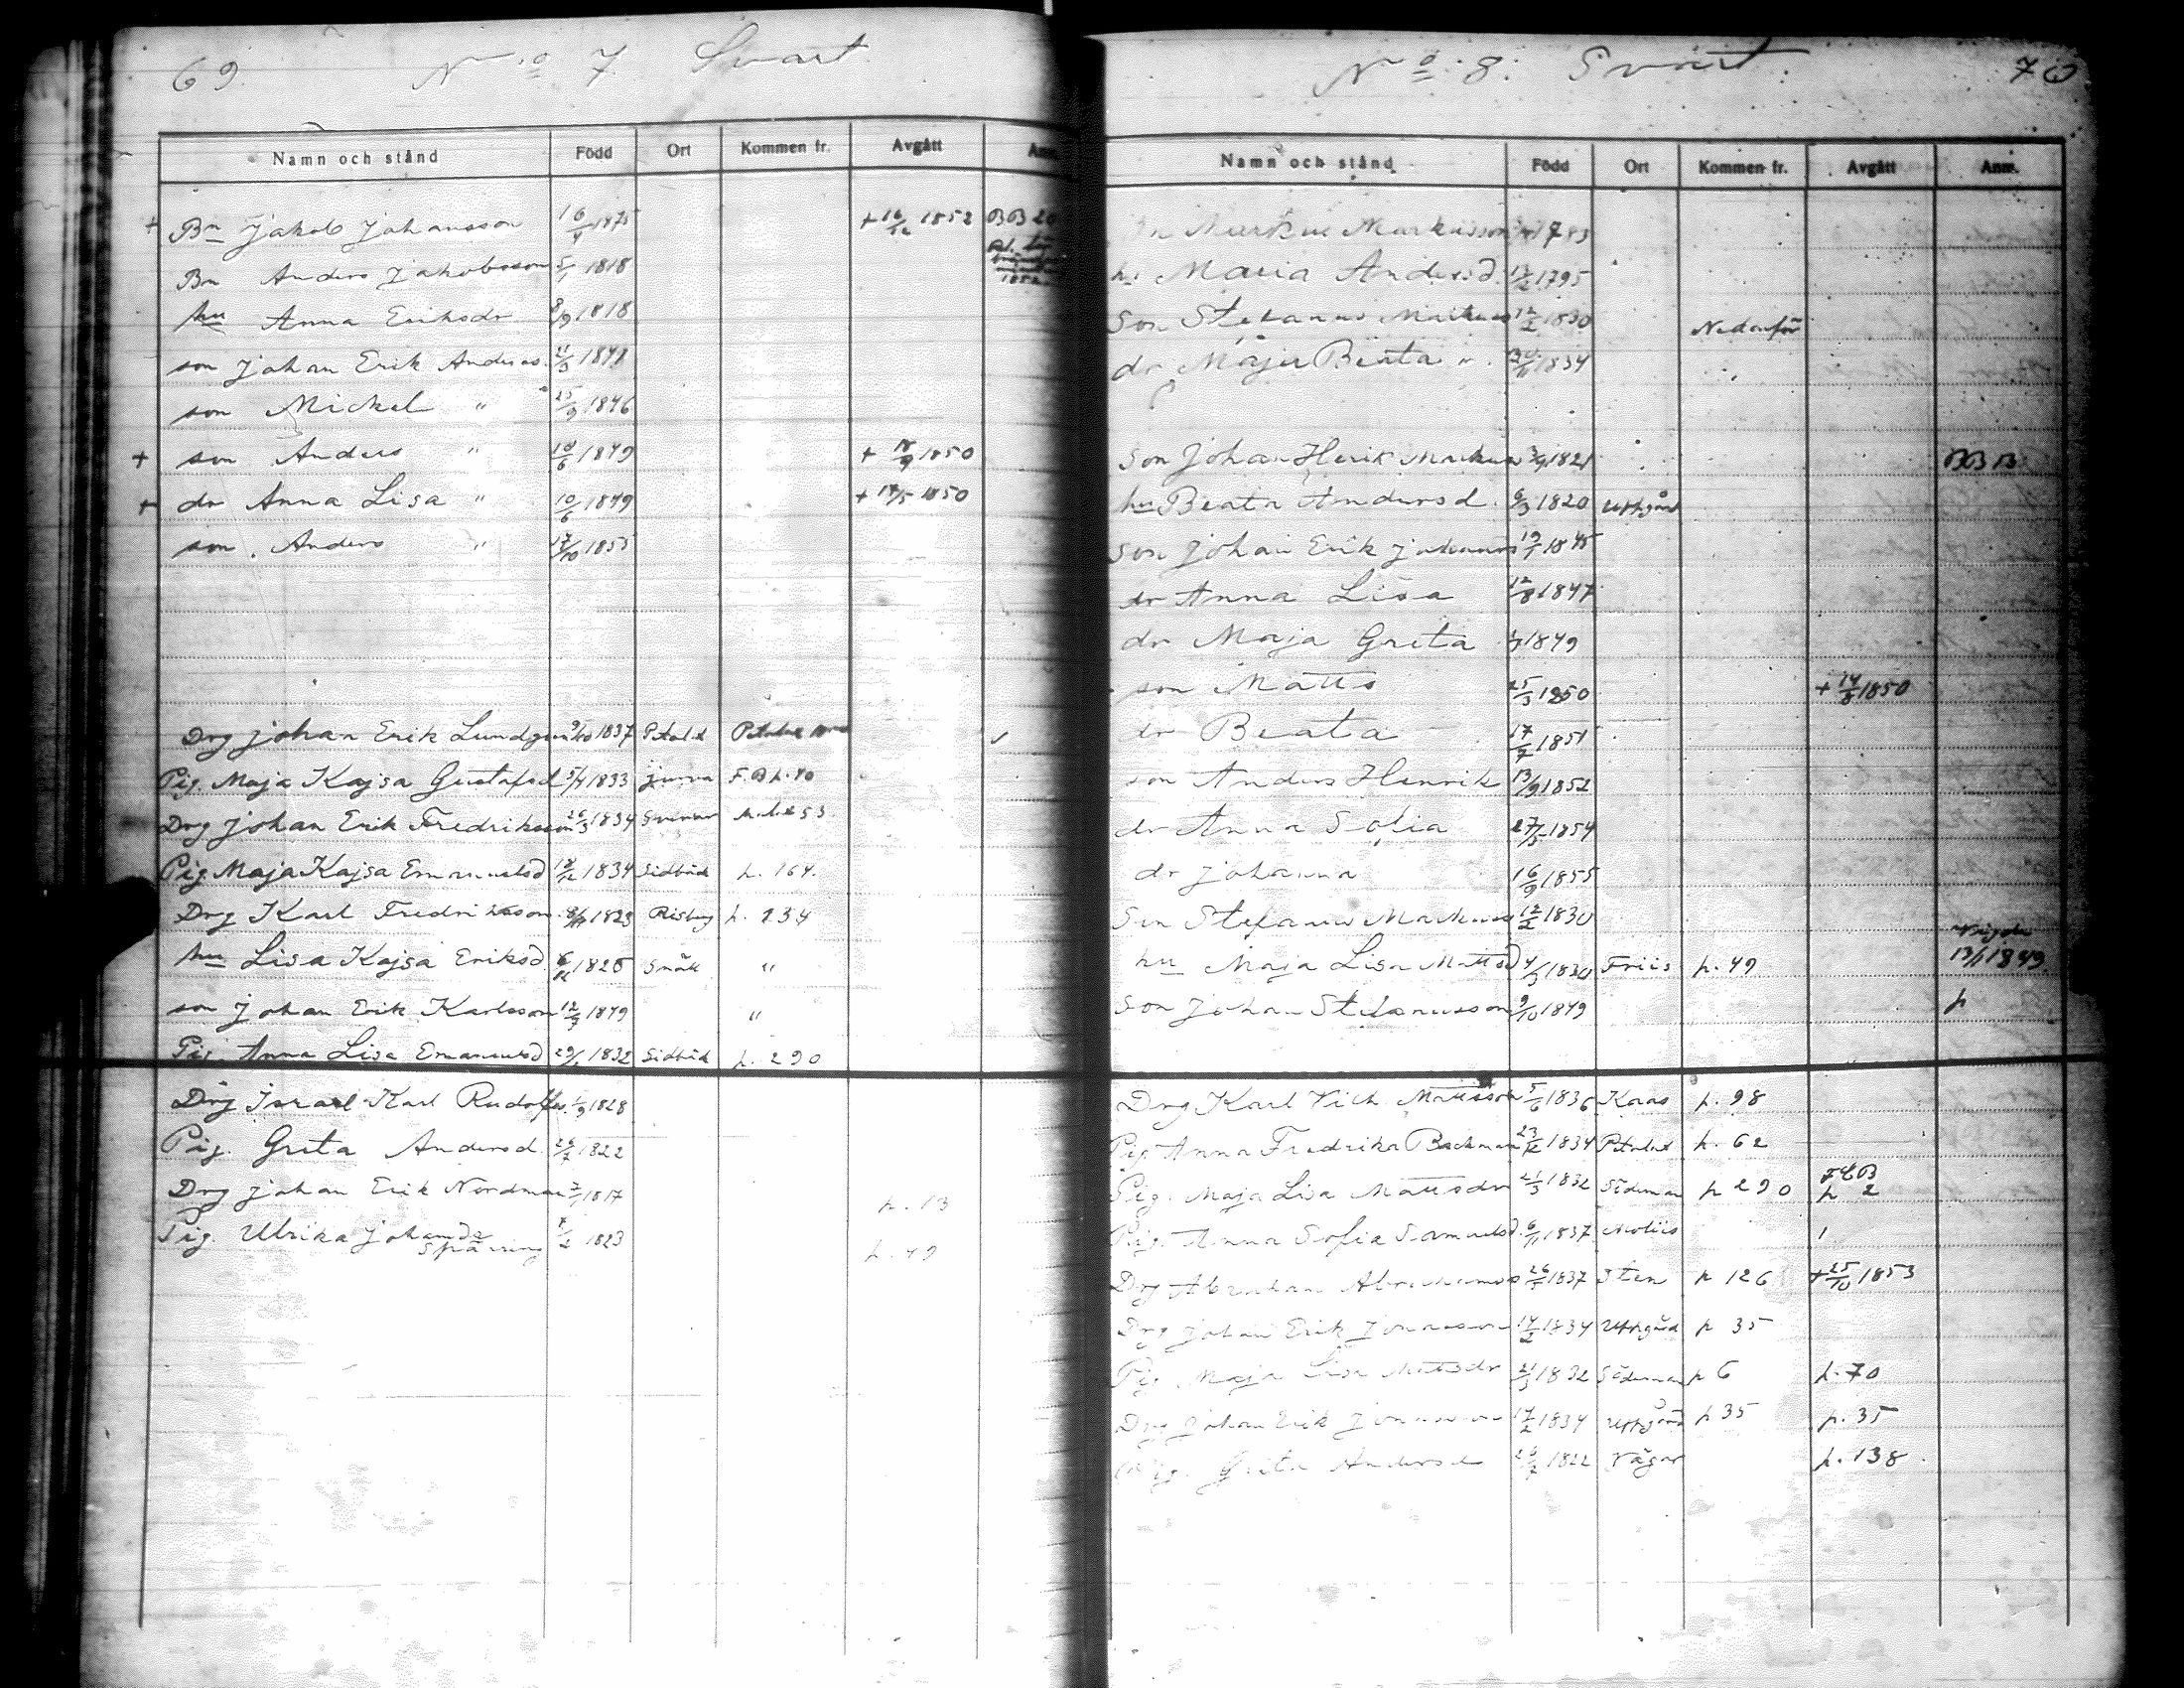 69. No 7. Svart.
Namn och stånd Född Ort Kommen fr. Avgått Anm.
+ Bn Jakob Johansson + 16/12 1852 BB 20
Bn Anders Jakobsson 5/1 1818
hu Anna Eriksdr 8/9 1818
son Johan Erik Anderss.
son Mickel " 25/9 1846
+ son Anders " 10/6 1849 + 18/9 1850
+ dr Anna Lisa " 10/6 1849 + 14/5 1850
son Anders " 17/10 1855
Drg Johan Erik Lundqvist 1837 Petalax Petalax
Pig. Maja Kajsa Gustafsd 5/4 1833 Jurva F.B. p. 40
Drg Johan Erik Fredriksson 26/3 1834
Pig. Maja Kajsa Emanuelsd 1834 Sidbäck p. 164.
Drg Karl Fredriksson 1823 Risberg p. 234
hu Lisa Kajsa Eriksd. 1826 "
son Johan Erik Karlsson 12/9 1849 "
Pig. Anna Lisa Emanuelsd 29/1 1832 Sidbäck p. 290
Drg Israel Karl Rudolfss. 1/9 1828
Pig. Greta Andersd. 26/7 1822
Drg Johan Erik Nordman 7/1 1817 p. 13
Pig. Ulrika Johansdr 1823 p. 49
Spärring
No. 8. Svart. 70
Namn och stånd Född Ort Kommen fr. Avgått Anm.
Markus Markusson 1783
hu Maria Andersd. 13/2 1795
Son Stefanus Markuss 12/2 1830 Nedanför
dr Maja Beata ". 1834 "
Son Johan Henrik Markuss 3/9 1821 BB 13
hu Beata Andersd. 6/3 1820 Uppgård
Son Johan Erik Johanss 19/1 1845
dr Anna Lisa 12/8 1847
dr Maja Greta 1849
son Matts 25/3 1850 + 14/8 1850
dr Beata 17/7 1851
son Anders Henrik 13/9 1852
dr Anna Sofia 27/5 1854
dr Johanna 16/9 1855
Son Stefanus Markuss 12/2 1830
hu Maja Lisa Mattsd 4/3 1830 Friis p. 49 13/1 1849
Son Johan Stefanusson 9/10 1849 p
Drg Karl Vilh. Mattsson 5/6 1836 Kaas p. 98
Pig Anna Fredrika Backman 23/12 1834 Petalax p. 62
Pig. Maja Lisa Mattsdr 21/3 1832 Söderman p 290 p 2
Pig. Anna Sofia Samuelsd. 6/11 1837
Drg Abraham Abrahamss 1837 Sten p 126 + 25/10 1853
Drg Johan Erik Jonasson 14/2 1834 Uppgård p 35
Pig. Maja Lisa Mattsdr 21/3 1832 Söderman p 6 p. 70
Drg Johan Erik Jonasson 14/2 1834 Uppgård p 35 p. 35
Pig. Greta Andersd 26/7 1822 Vägar p. 138